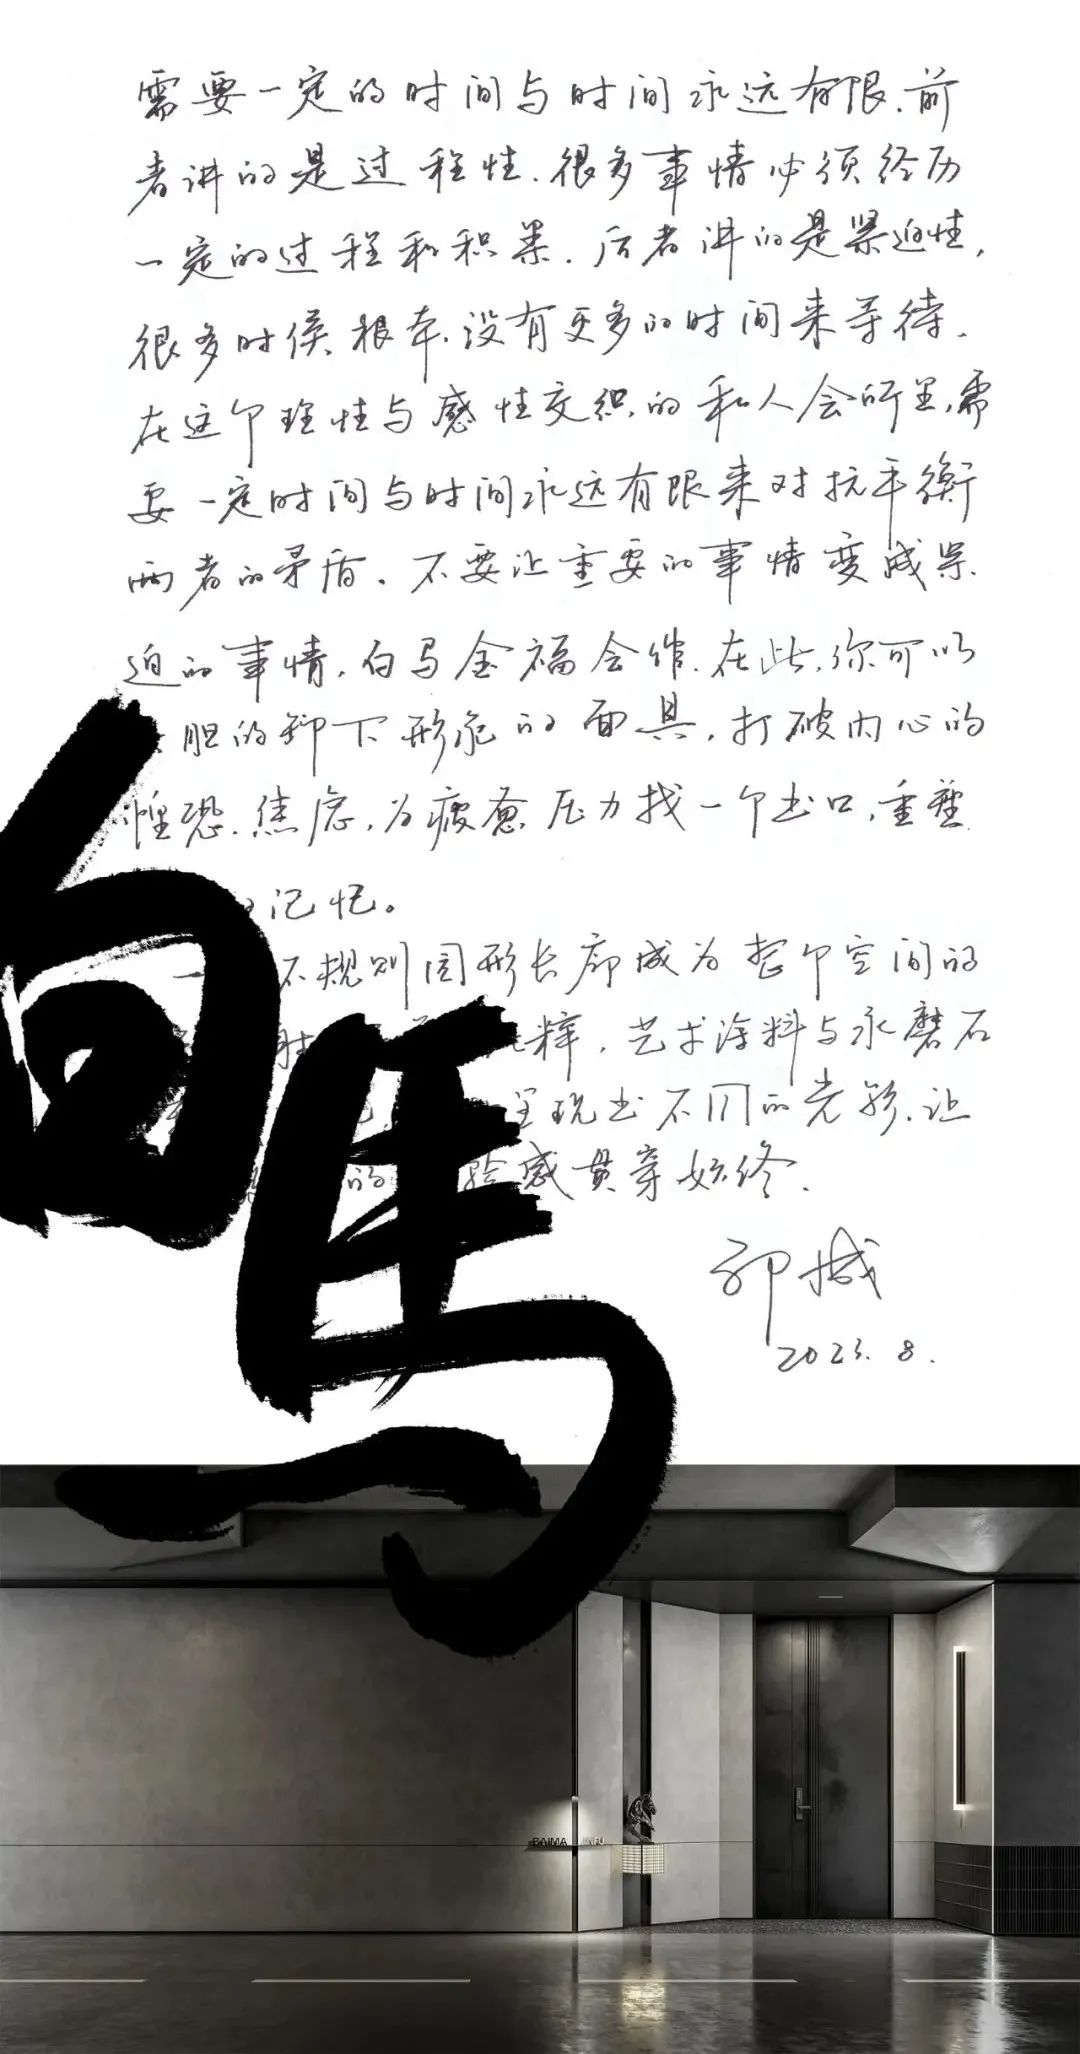 需要一定的时间与时间永远有限.前
者讲的是过程性.很多事情必须经历
一定的过程和积累.后者讲的是紧迫性,
很多时侯根本没有更多的时间来等待.
在这个理性与感性交织的私人会所里,需
要一定时间与时间永远有限来对抗平衡
两者的矛盾.不要让重要的事情变成紧
迫的事情,白马金福会馆.在此,你可以
胆的卸下形形的面具,打破内心的
惶恐.焦虑,为疲惫压力找一个出口,重塑
记忆。
不规则圆形长廊成为整个空间的
粹,艺术涂料与水磨石
呈现出不同的光影.让
的 验感贯穿始终.
2023.8.
白马
BAIMA